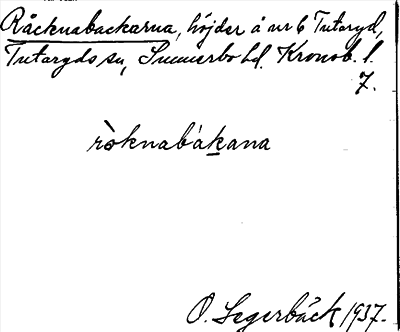 Råcknabackarna, höjder å nr 6 Tutaryd,
Tutaryds sn, Sunnerbo hd. Kronob. l.
7.
ròknabákana
O. Segerbäck 1937.